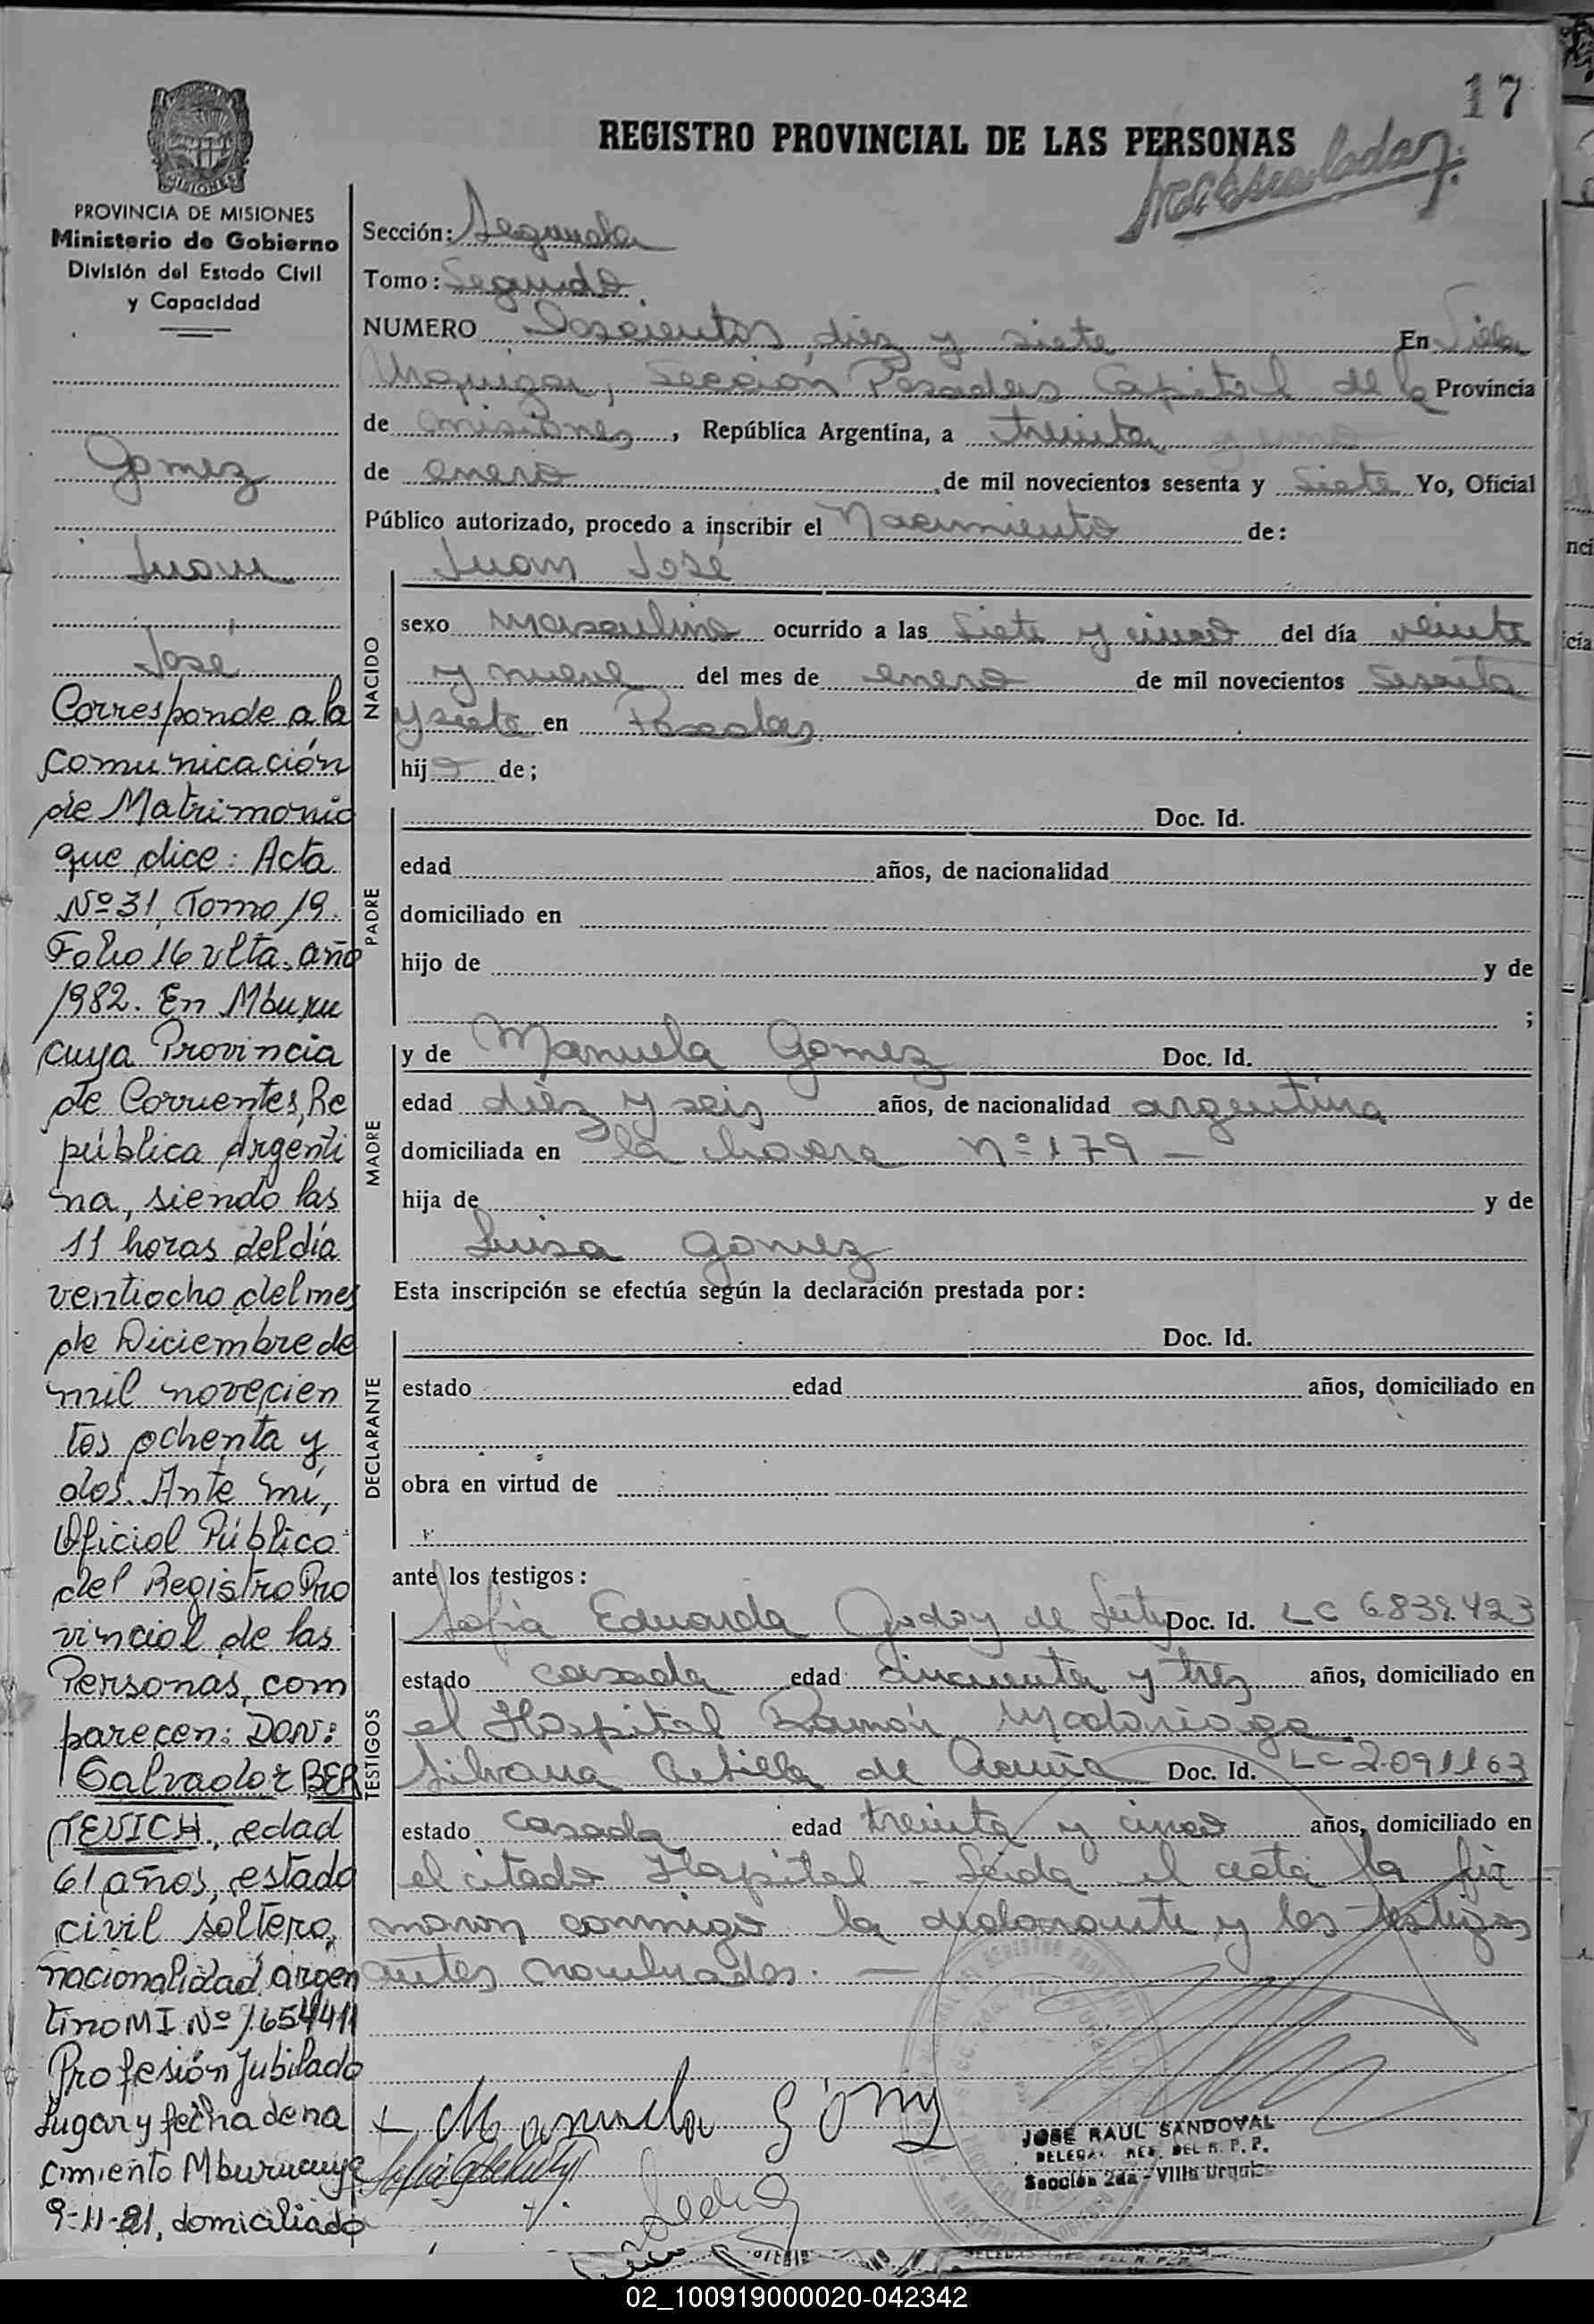 17
REGISTRO PROVINCIAL DE LAS PERSONAS
MISIONES
PROVINCIA DE MISIONES
Ministerio de Gobierno
División del Estado Civil
y Capacidad
Gomez
Juan
Jose
Corresponde a la
comunicación
de Matrimonio
que dice: Acta
Nº 31, Tomo 19.
Folio 16 vlta. año
1982. En Mburu
cuya Provincia
de Corrientes, Re
pública Argenti
na, siendo las
11 horas del día
ventiocho del mes
de Diciembre de
mil novecien
tos ochenta y
dos. Ante mí,
Oficial Público
del Registro Pro
vincial de las
Personas, com
parecen: DON:
Salvador BER
TEVICH, edad
61 años, estado
civil soltero,
nacionalidad argen
tino MI Nº 1.654411
Profesión Jubilado
Lugar y fecha de na
cimiento Mburucuya
9-11-21, domiciliado
Sección: Segunda
Tomo: Segundo
NUMERO Doscientos diez y siete En Villa
Urquiza, Sección Posadas Capital de la Provincia
de Misiones, República Argentina, a treinta
de enero de mil novecientos sesenta y siete Yo, Oficial
Público autorizado, procedo a inscribir el Nacimiento de:
NACIDO
Juan José
sexo masculino ocurrido a las siete y cinco del día veinte
y nueve del mes de enero de mil novecientos sesenta
y siete en Posadas
hijo de;
PADRE
Doc. Id.
edad años, de nacionalidad
domiciliado en
hijo de y de
;
MADRE
y de Manuela Gomez Doc. Id.
edad diez y seis años, de nacionalidad argentina
domiciliada en la chacra Nº 179 -
hija de y de
Luisa Gomez
Esta inscripción se efectúa según la declaración prestada por:
DECLARANTE
Doc. Id.
estado edad años, domiciliado en
obra en virtud de
ante los testigos:
TESTIGOS
Sofia Eduarda Godoy de Doc. Id. LC 6.839.423
estado casada edad cincuenta y tres años, domiciliado en
el Hospital Ramón Madariaga
Silvana de Acuña Doc. Id. LC 2.091163
estado casada edad treinta y cinco años, domiciliado en
el citado Hospital - Leida el acta la fir
maron conmigo la declarante y los testigos
antes nombrados. —
Manuela Gómez
JOSE RAUL SANDOVAL
DELEGA. RES. DEL R. P. P.
Sección 2da - Villa Urquiza
02_100919000020-042342